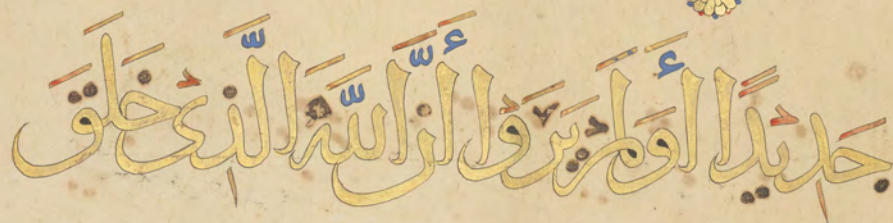 جَدِيدًا أَوَلَمْ يَرَوْا أَنَّ اللَّهَ الَّذِي خَلَقَ